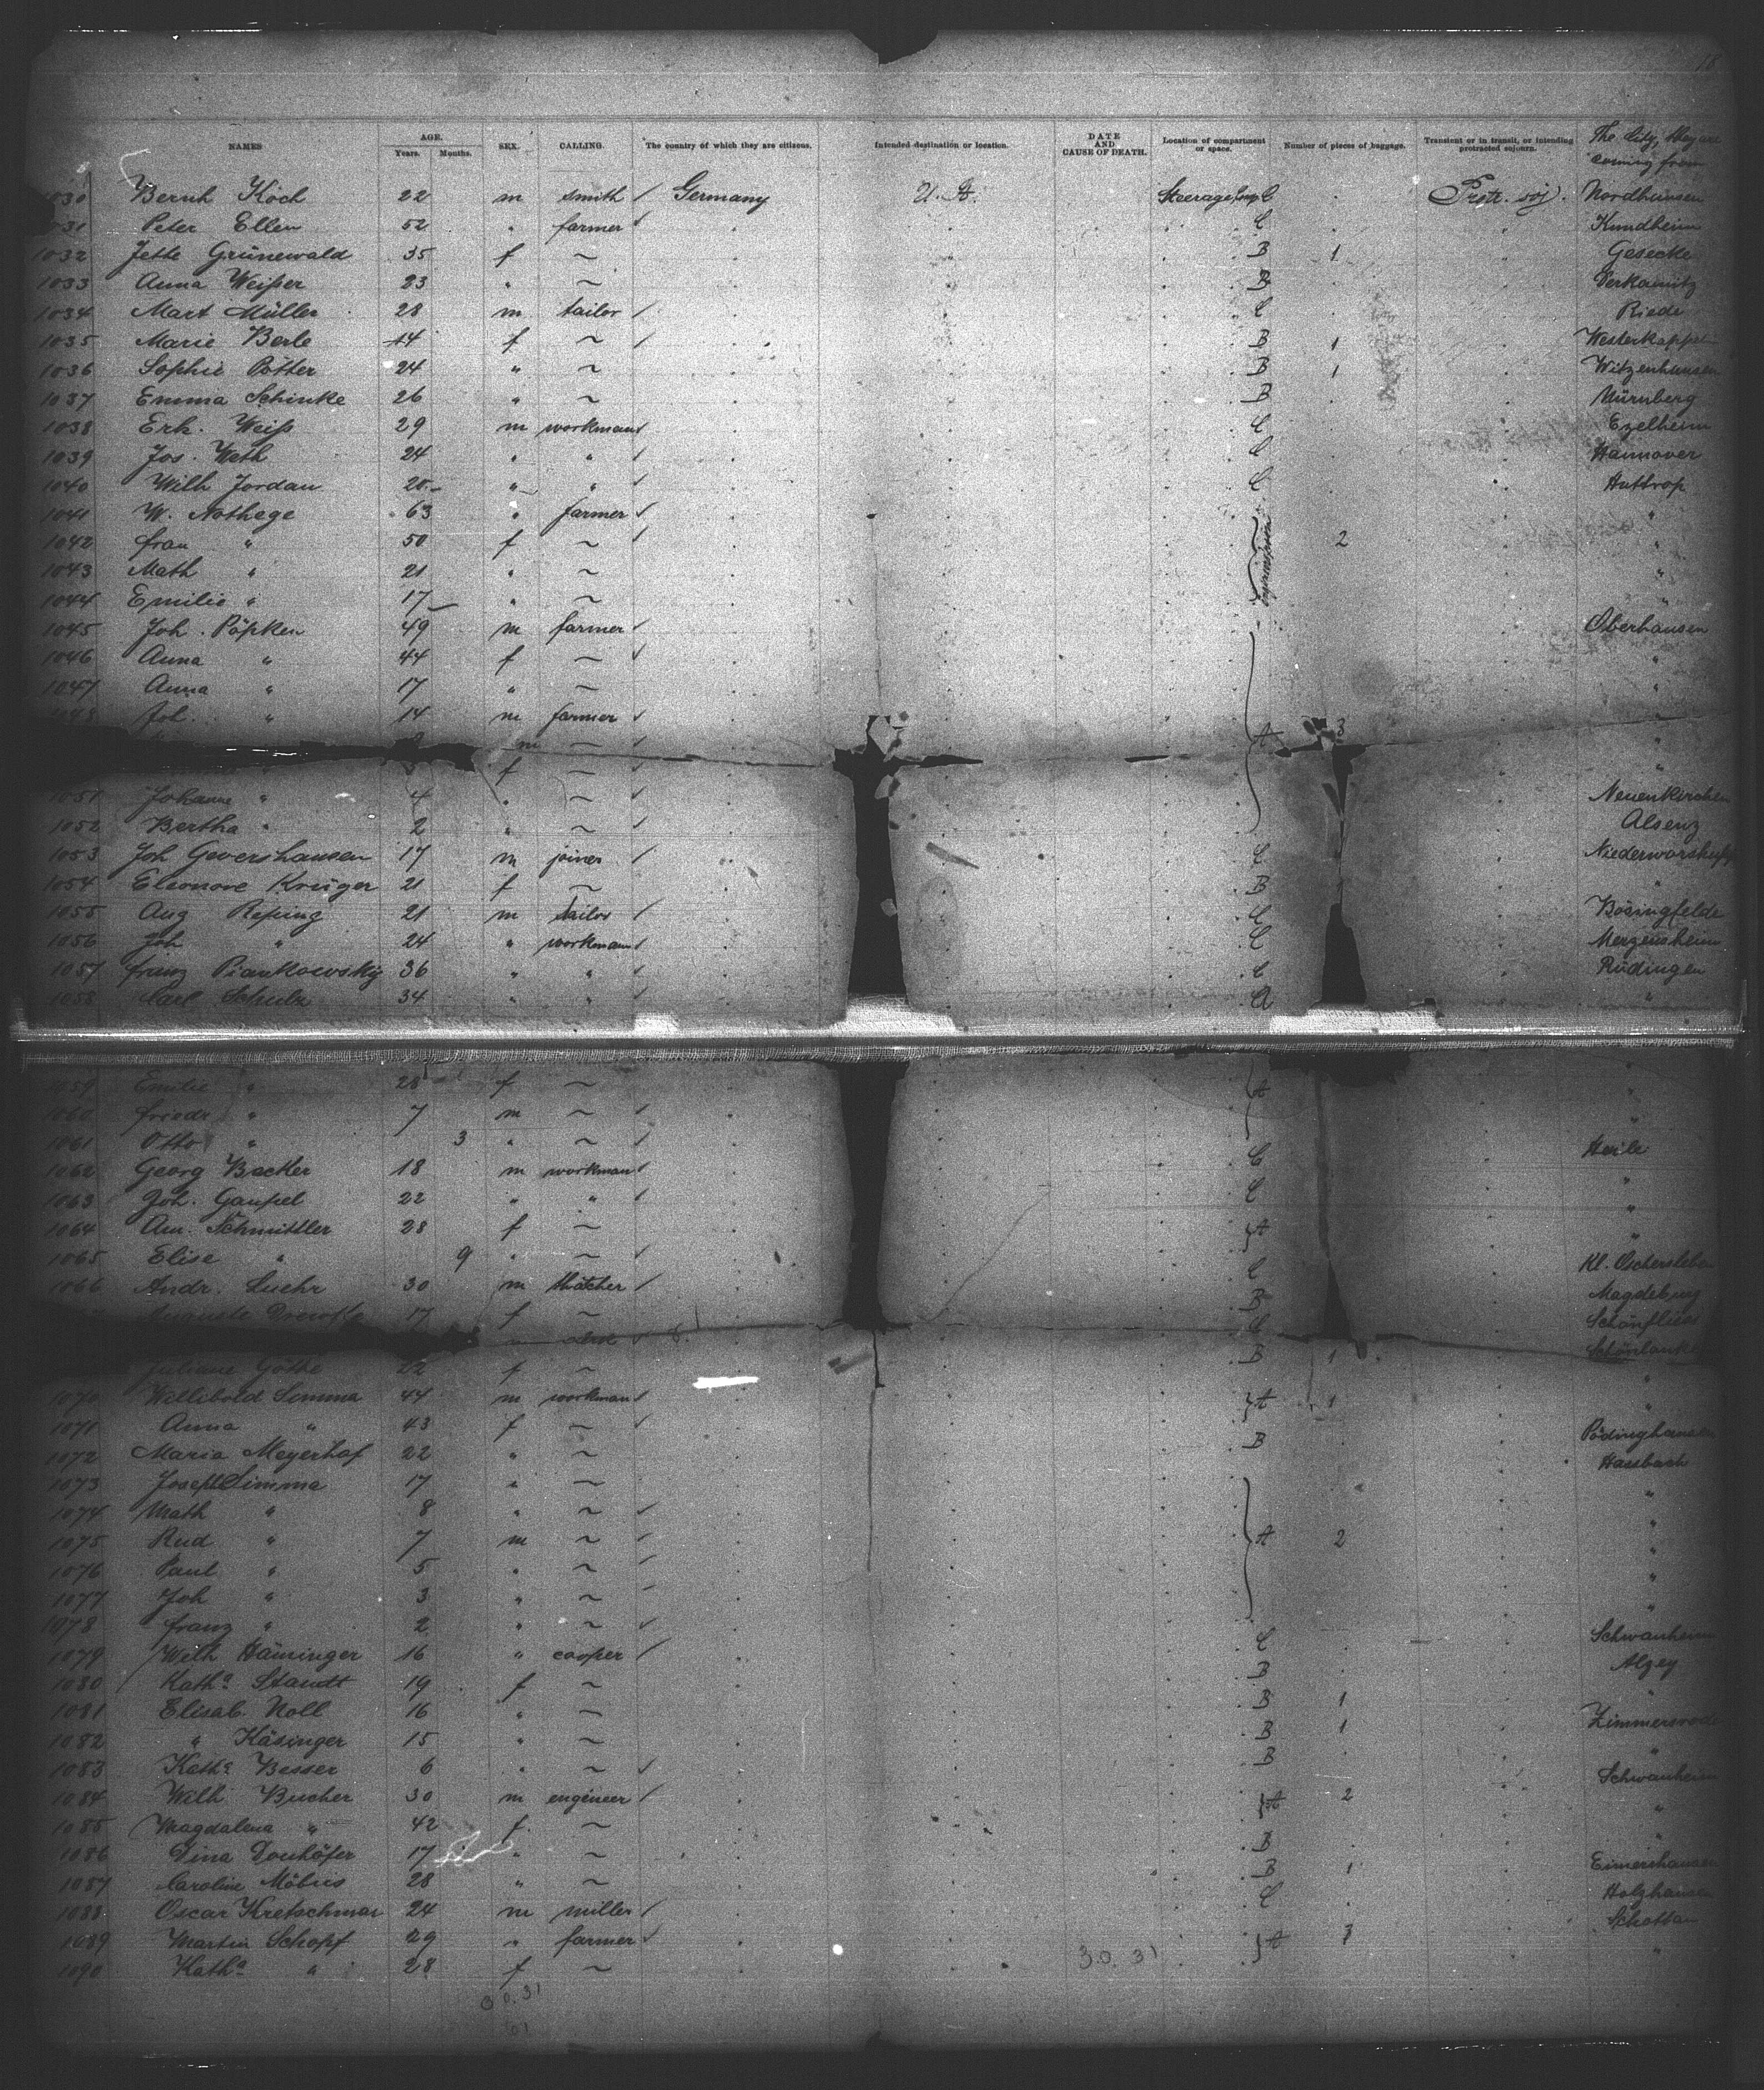 18
NAMES AGE. Years. Months. SEX. CALLING. The country of which they are citizens. Intended destination or location. DATE AND CAUSE OF DEATH. Location of compartment or space. Number of pieces of baggage. Transient or in transit, or intending protracted sojourn. The City, they are coming from
1030 Bernh Koch 22 m smith / Germany U. St. Steerage C Prtr. soj. Nordheimsen
1031 Peter Ellen 52 " farmer C Kundheim
1032 Jette Grünewald 35 f ~ B 1 Gesecke
1033 Anna Weißer 23 " ~ B
1034 Mart Müller 28 m tailor / C Riede
1035 Marie Berle 14 f ~ B 1 Westerkappeln
1036 Sophie Pötter 24 " ~ B 1 Witzenhausen
1037 Emma Schinke 26 " ~ B Nürnberg
1038 Erh. Weiß 29 m workman C Ezelheim
1039 Jos. Weth 24 " " C Hannover
1040 Wilh Jordan 20 " " C Huttrop
1041 W. Nothege 63 " farmer "
1042 frau " 50 f ~ 2 "
1043 Math " 21 " ~ "
1044 Emilie " 17 " ~ "
1045 Joh. Pöpken 49 m farmer Oberhausen
1046 Anna " 44 f ~ "
1047 Anna " 17 " ~ "
1048 Joh. " 14 m farmer A 3
m ~ "
f ~ "
1051 Johanne " 4 " ~ Neuenkirchen
1052 Bertha " 2 " ~ Alsenz
1053 Joh Gevershausen 17 m joiner / C
1054 Eleonore Krüger 21 f ~ B "
1055 Aug Reßing 21 m tailor / C Bösingfelde
1056 Joh " 24 " workman C Merzensheim
1057 franz Piankowsky 36 " " C Rüdingen
1058 Carl Schulz 34 " " A "
1059 Emilie " 28 f ~ A "
1060 friedr " 7 m ~ "
1061 Otto " 3 " ~ Herle
1062 Georg Becker 18 m workman C
1063 Joh. Gaußel 22 " " C "
1064 Am. Schmittler 28 f ~ A "
1065 Elise " 9 " ~ Kl. Oschersleben
1066 Andr. Luehr 30 m thatcher / C Magdeburg
Auguste Drewske 17 f ~ B Schönfliess
C Schönlanke
Juliane Göthe 22 f ~ B 1
1070 Willibold Simma 44 m workman A 1 "
1071 Anna " 43 f ~ Pödinghausen
1072 Maria Meyerhof 22 " ~ B Hassbach
1073 Joseph Simma 17 " ~ "
1074 Math " 8 " ~ "
1075 Rud " 7 m ~ A 2 "
1076 Paul " 5 " ~ "
1077 Joh " 3 " ~ "
1078 franz " 2 " ~ Schwanheim
1079 Wilh Häuninger 16 " cooper / C Alzey
1080 Katha Staudt 19 f ~ B "
1081 Elisab. Noll 16 " ~ B 1 Zimmersrode
1082 " Käsinger 15 " ~ B 1 "
1083 Katha Besser 6 " ~ B Schwanheim
1084 Wilh Bucher 30 m engineer / A 2 "
1085 Magdalena " 42 f ~ "
1086 Dina Douhöfer 17 " ~ B Eimershausen
1087 Caroline Möbus 28 " ~ B 1 Holzhausen
1088 Oscar Kretschmar 24 m miller / C Schotten
1089 Martin Schopf 29 " farmer A 3 "
1090 Katha " 28 f ~
30. 31
30. 31
61